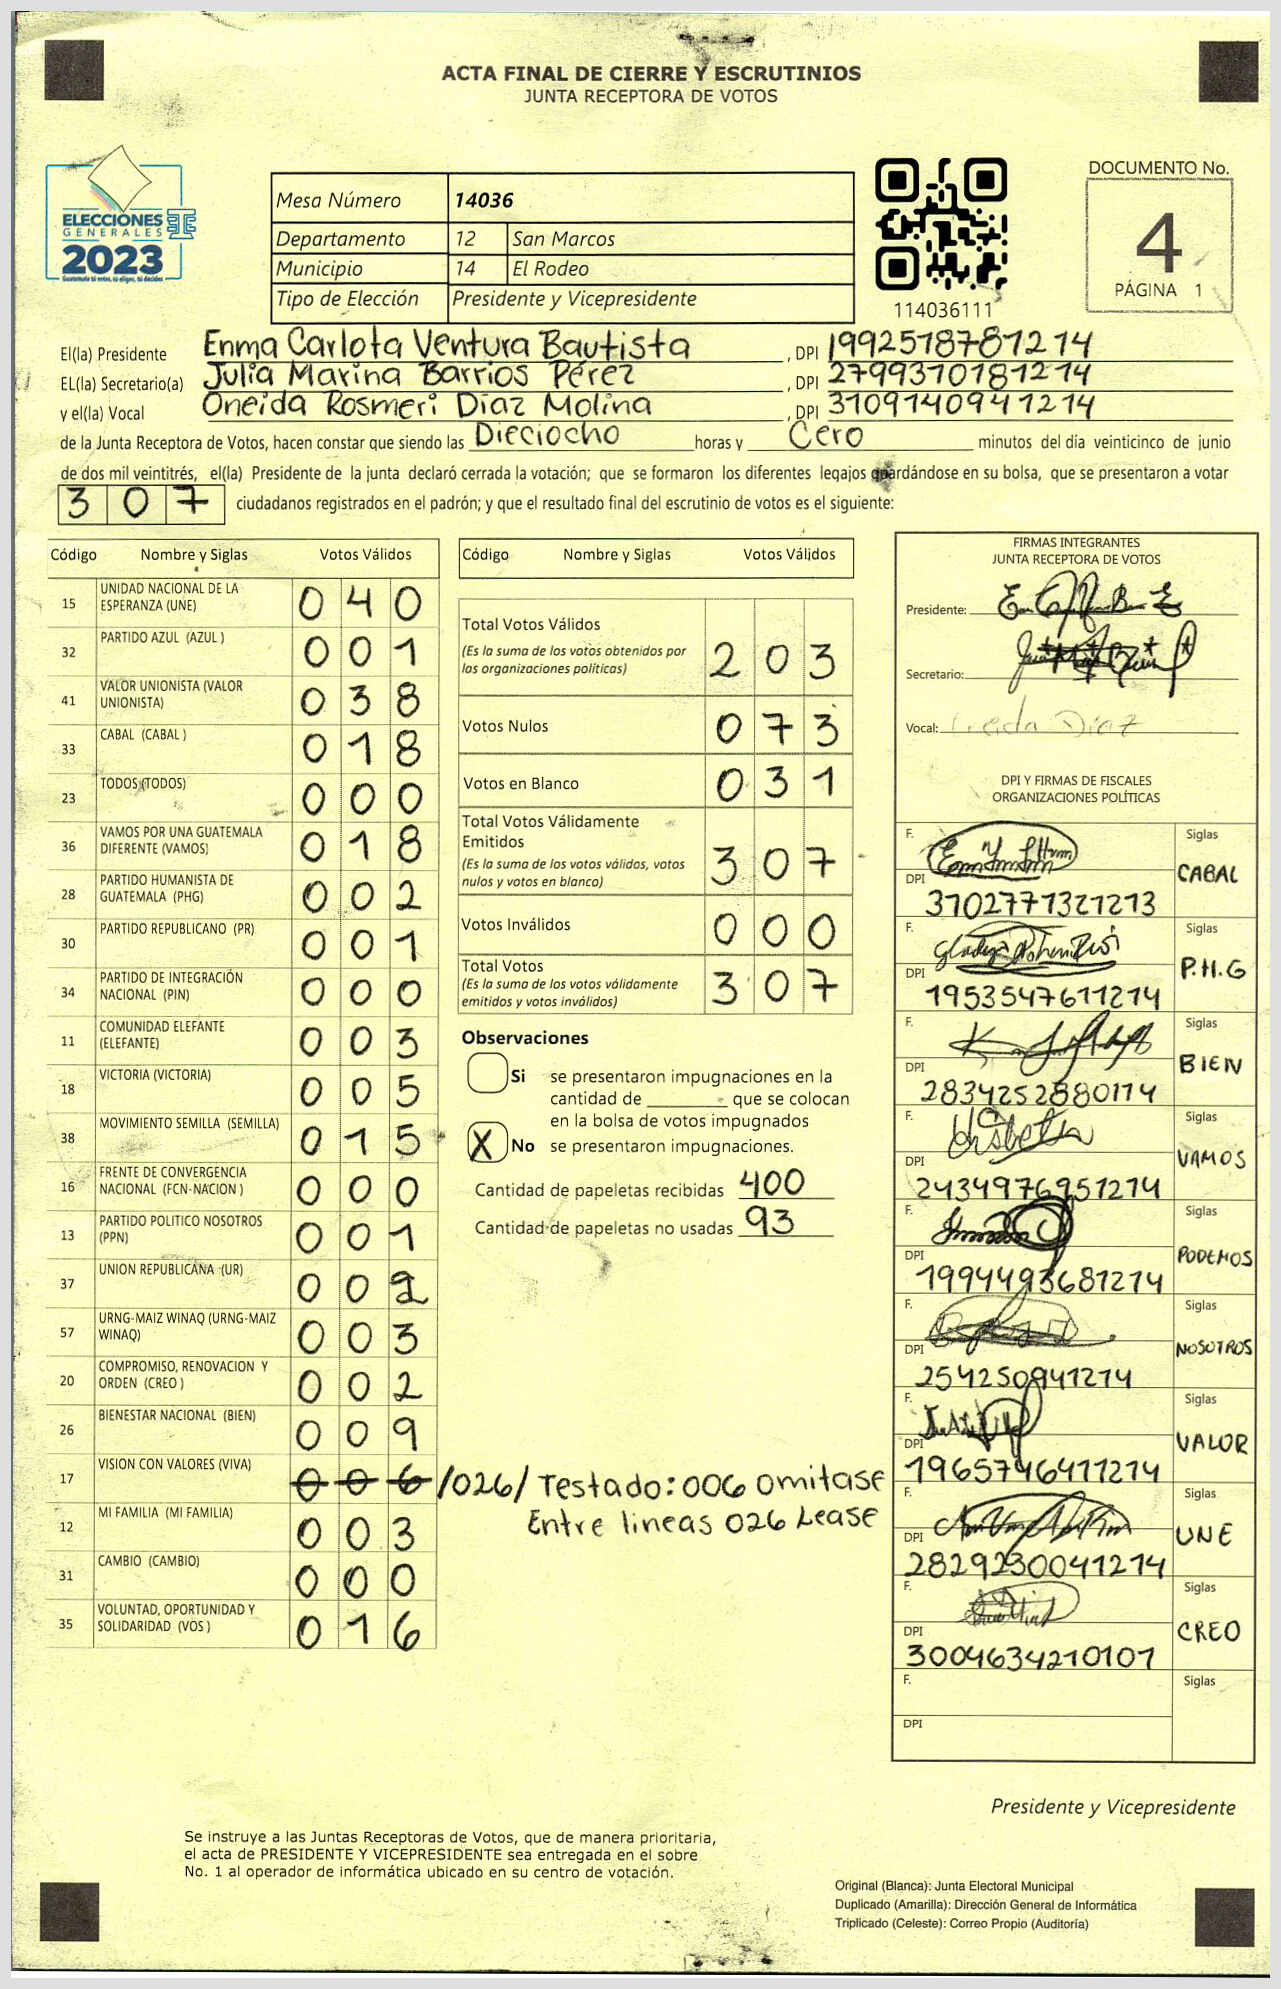 ACTA FINAL DE CIERRE Y ESCRUTINIOS
JUNTA RECEPTORA DE VOTOS
ELECCIONES
GENERALES
2023
Guatemala tú votas, tú eliges, tú decides
Mesa Número 14036
Departamento 12 San Marcos
Municipio 14 El Rodeo
Tipo de Elección Presidente y Vicepresidente
114036111
DOCUMENTO No.
4
PÁGINA 1
El(la) Presidente Enma Carlota Ventura Bautista, DPI 1992518781214
EL(la) Secretario(a) Julia Marina Barrios Pérez, DPI 2799310181214
y el(la) Vocal Oneida Rosmeri Díaz Molina, DPI 3109140941214
de la Junta Receptora de Votos, hacen constar que siendo las Dieciocho horas y Cero minutos del día veinticinco de junio
de dos mil veintitrés, el(la) Presidente de la junta declaró cerrada la votación; que se formaron los diferentes legajos guardándose en su bolsa, que se presentaron a votar
307 ciudadanos registrados en el padrón; y que el resultado final del escrutinio de votos es el siguiente:
Código Nombre y Siglas Votos Válidos
15 UNIDAD NACIONAL DE LA ESPERANZA (UNE) 040
32 PARTIDO AZUL (AZUL ) 001
41 VALOR UNIONISTA (VALOR UNIONISTA) 038
33 CABAL (CABAL ) 018
23 TODOS (TODOS) 000
36 VAMOS POR UNA GUATEMALA DIFERENTE (VAMOS) 018
28 PARTIDO HUMANISTA DE GUATEMALA (PHG) 002
30 PARTIDO REPUBLICANO (PR) 001
34 PARTIDO DE INTEGRACIÓN NACIONAL (PIN) 000
11 COMUNIDAD ELEFANTE (ELEFANTE) 003
18 VICTORIA (VICTORIA) 005
38 MOVIMIENTO SEMILLA (SEMILLA) 015
16 FRENTE DE CONVERGENCIA NACIONAL (FCN-NACION ) 000
13 PARTIDO POLITICO NOSOTROS (PPN) 001
37 UNION REPUBLICANA (UR) 002
57 URNG-MAIZ WINAQ (URNG-MAIZ WINAQ) 003
20 COMPROMISO, RENOVACION Y ORDEN (CREO ) 002
26 BIENESTAR NACIONAL (BIEN) 009
17 VISION CON VALORES (VIVA) 006 /026/ Testado: 006 omitase
Entre lineas 026 Lease
12 MI FAMILIA (MI FAMILIA) 003
31 CAMBIO (CAMBIO) 000
35 VOLUNTAD, OPORTUNIDAD Y SOLIDARIDAD (VOS ) 016
Código Nombre y Siglas Votos Válidos
Total Votos Válidos
(Es la suma de los votos obtenidos por
las organizaciones políticas) 203
Votos Nulos 073
Votos en Blanco 031
Total Votos Válidamente
Emitidos
(Es la suma de los votos válidos, votos
nulos y votos en blanco) 307
Votos Inválidos 000
Total Votos
(Es la suma de los votos válidamente
emitidos y votos inválidos) 307
Observaciones
Si se presentaron impugnaciones en la
cantidad de ________ que se colocan
en la bolsa de votos impugnados
X No se presentaron impugnaciones.
Cantidad de papeletas recibidas 400
Cantidad de papeletas no usadas 93
FIRMAS INTEGRANTES
JUNTA RECEPTORA DE VOTOS
Presidente:
Secretario:
Vocal: Díaz
DPI Y FIRMAS DE FISCALES
ORGANIZACIONES POLÍTICAS
F. Siglas
DPI 3102771321213 CABAL
F. Siglas
DPI 1953547611214 P.H.G
F. Siglas
DPI 2834252880114 BIEN
F. Siglas
DPI 2434976951214 VAMOS
F. Siglas
DPI 1994493681214 PODEMOS
F. Siglas
DPI 254250941214 NOSOTROS
F. Siglas
DPI 1965746411214 VALOR
F. Siglas
DPI 2829230041214 UNE
F. Siglas
DPI 3004634210101 CREO
F. Siglas
DPI
Presidente y Vicepresidente
Se instruye a las Juntas Receptoras de Votos, que de manera prioritaria,
el acta de PRESIDENTE Y VICEPRESIDENTE sea entregada en el sobre
No. 1 al operador de informática ubicado en su centro de votación.
Original (Blanca): Junta Electoral Municipal
Duplicado (Amarilla): Dirección General de Informática
Triplicado (Celeste): Correo Propio (Auditoría)